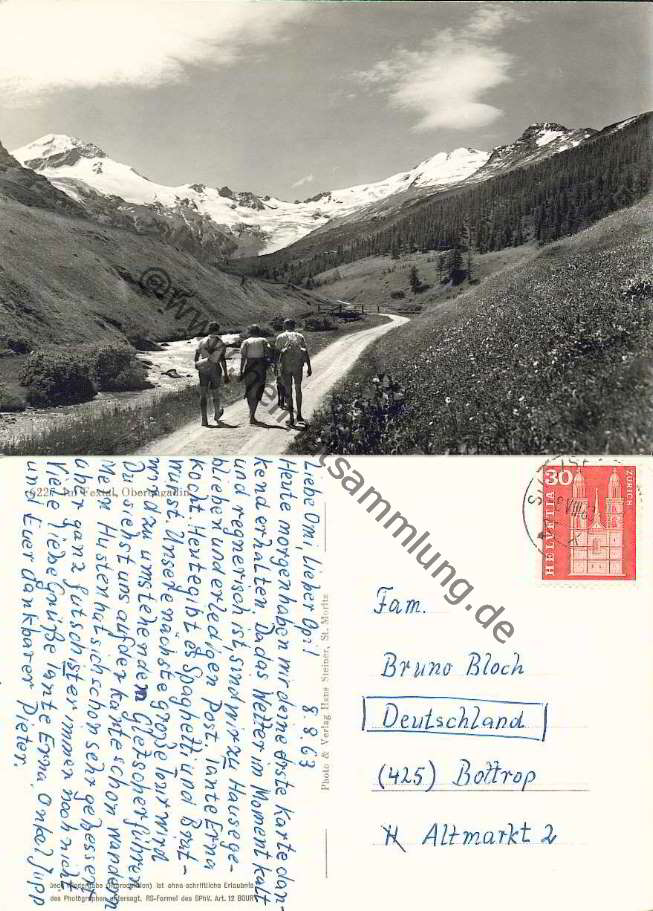 6227 Im Fextal, Oberengadin
Photo & Verlag Hans Steiner, St. Moritz
8.8.63
Liebe Omi, lieber Opi!
Heute morgen haben wir deine erste Karte dan-
kend erhalten. Da das Wetter im Moment kalt
und regnerisch ist, sind wir zu Hause ge-
blieben und erledigen Post. Tante Erna
kocht. Heute gibt es Spaghetti und Brat-
wurst. Unsere nächste große Tour wird
wird zu umstehendem Gletscher führen
Du siehst uns auf der Karte schon wandern
Mein Husten hat sich schon sehr gebessert
aber ganz gut ist er immer noch nicht
Viele liebe Grüße Tante Erna, Onkel Jupp
und Euer dankbarer Dieter.
HELVETIA
30
ZÜRICH
Fam.
Bruno Bloch
Deutschland
(425) Bottrop
Altmarkt 2
ist ohne schriftliche Erlaubnis
des Photographen untersagt. RS-Formel des SPhV. Art. 12 BGUR